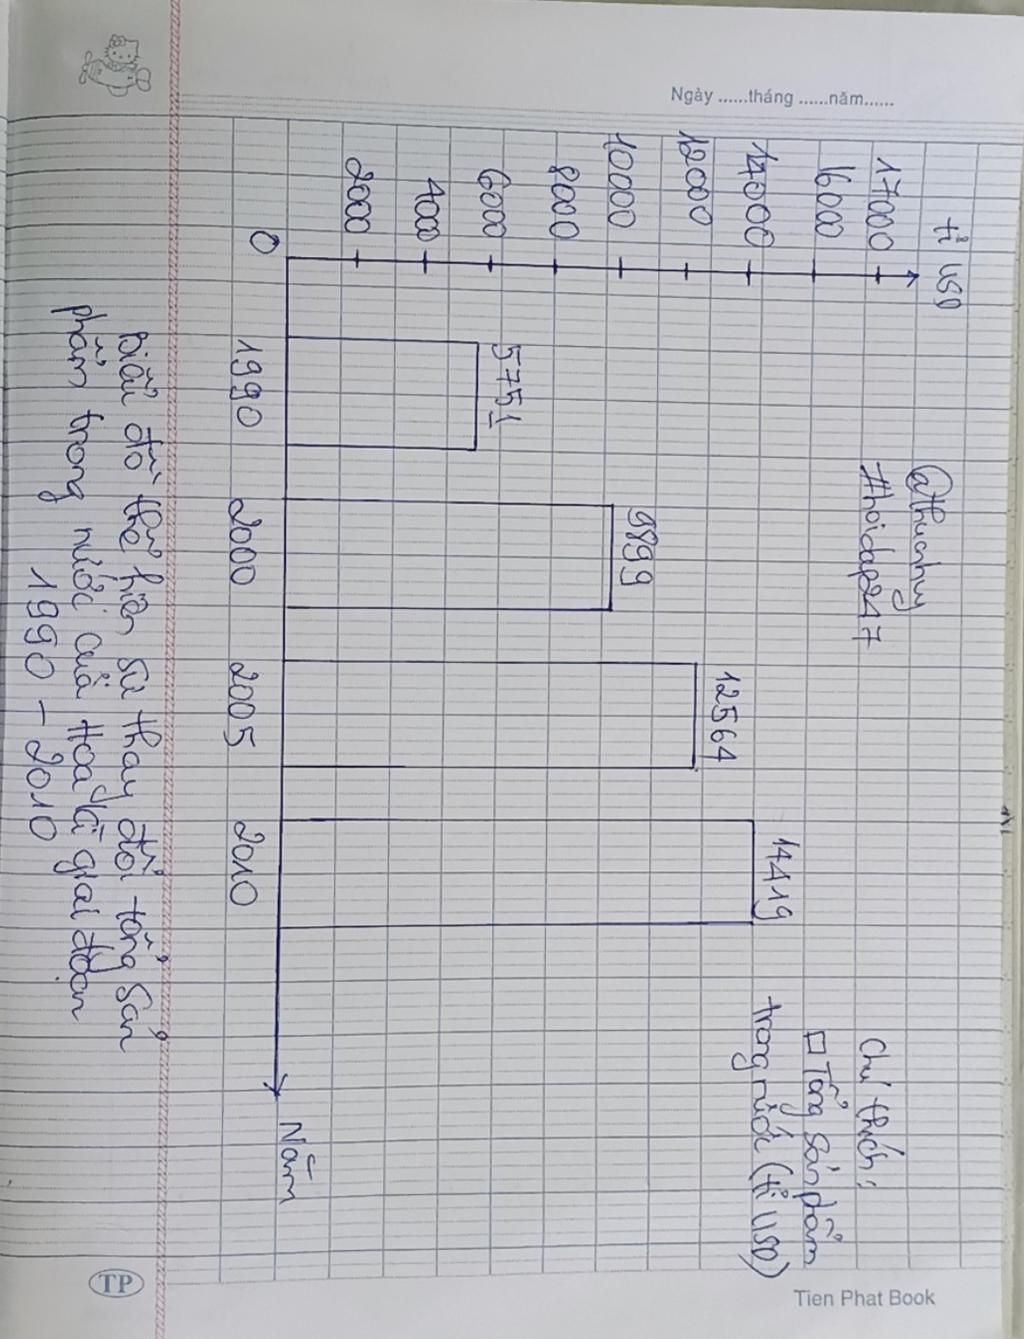 Ngày ......tháng ......năm......
tỉ USD
17000
16000
14000
12000
10000
8000
6000
4000
2000
0
@thuanhuy
#hoidap247
5751
9899
12564
14419
1990
2000
2005
2010
Năm
Chú thích:
Tổng sản phẩm
trong nước (tỉ USD)
Biểu đồ thể hiện sự thay đổi tổng sản
phẩm trong nước của Hoa Kì giai đoạn
1990 - 2010
TP
Tien Phat Book